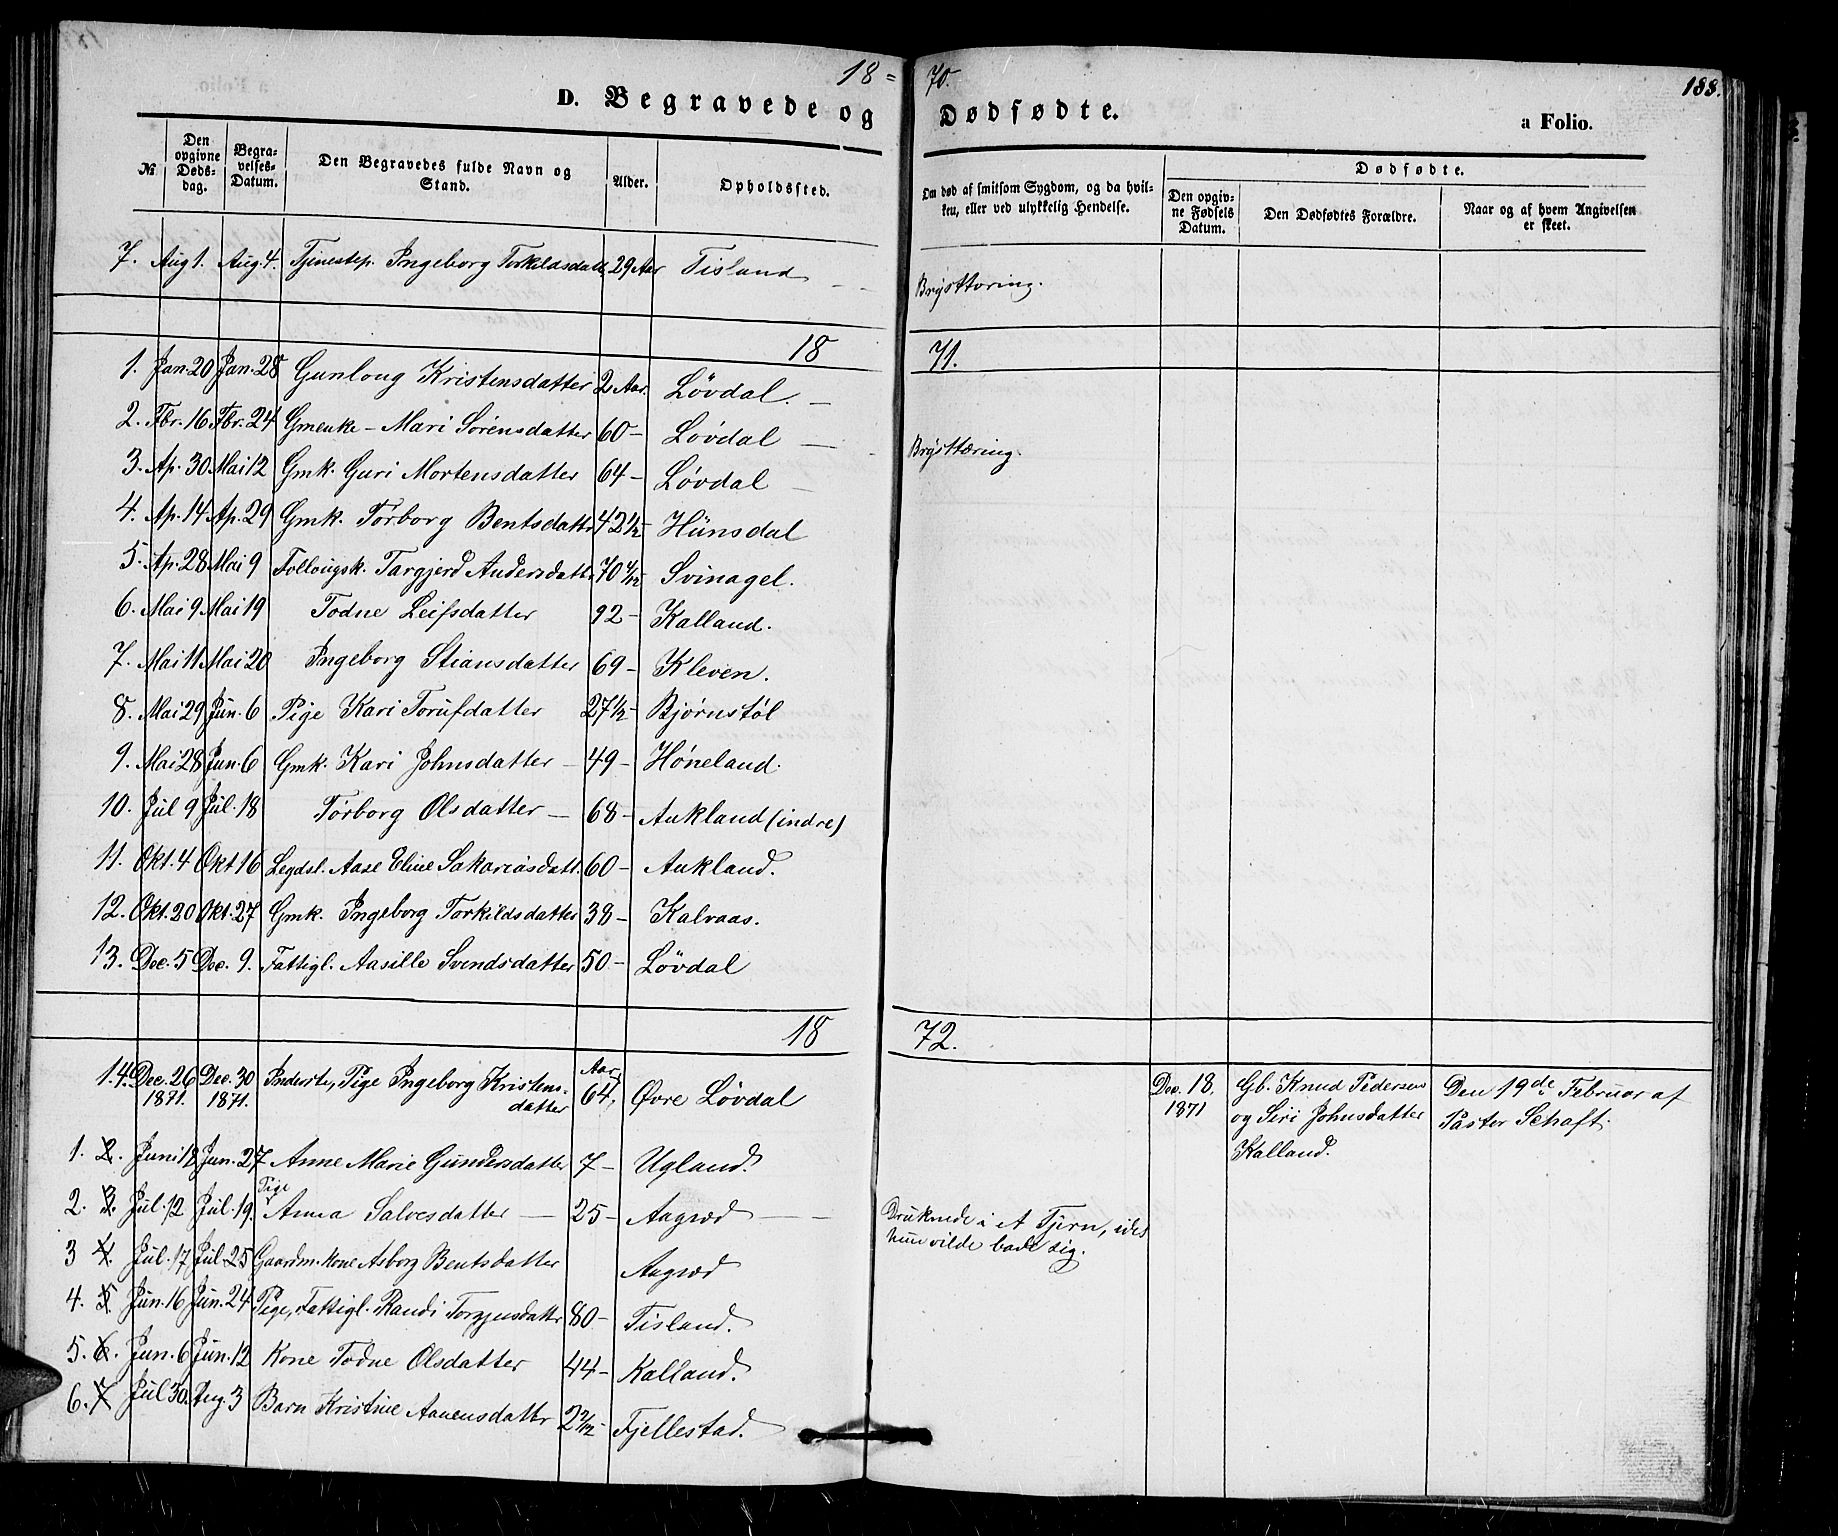 18=70.
188.
D. Begravede og Dødfødte.
a Folio.
№ | Den opgivne Døds-dag. | Begra-velses-Datum. | Den Begravedes fulde Navn og Stand. | Alder. | Opholdssted. | Om død af smitsom Sygdom, og da hvil-ken, eller ved ulykkelig Hendelse. | Dødfødte. | Den opgiv-ne Fødsels Datum. | Den Dødfødtes Forældre. | Naar og af hvem Angivelsen er skeet.
7. Aug 1. Aug. 4. Tjenestep. Ingeborg Torkildsdatt 29 Aar Tisland — Brysttæring.
1871.
1. Jan. 20 Jan. 28 Gunloug Kristensdatter 2 Aar. Lövdal. —
2. Fbr. 16 Fbr. 24 Gmenke - Mari Sörensdatter 60 - Lövdal — Brysttæring.
3. Ap. 30 Mai 12 Gmk. Guri Mortensdatter 64 - Lövdal —
4. Ap. 14 Ap. 29 Gmk. Törborg Bentsdattr 42 1/2 - Hünsdal
5. Ap. 28 Mai 9 Follougsk. Targjerd Andersdatt 70 4/12 Svinagel.
6. Mai 9 Mai 19 Todne Leifsdatter 92 - Kalland.
7. Mai 11 Mai 20 Ingeborg Stiansdatter 69 - Kleven.
8. Mai 29 Jun. 6 Pige Kari Torufdatter 27 1/2 - Bjørnstøl
9. Mai 28 Jun. 6 Gmk. Kari Johnsdatter - 49 - Høneland.
10. Jul 9 Jul. 18 Törborg Olsdatter - 68 - Aukland (indre)
11. Okt. 4 Okt 16 Legdsl. Aase Eline Sakariasdatt. 60 - Aukland.
12. Okt. 20 Okt. 27 Gmk. Ingeborg Torkildsdatter 38 - Kalvaas.
13. Dec. 5 Dec. 9. Fattigl. Aasille Svendsdatter 50 - Lövdal
1872.
14. Dec. 26 1871. Dec. 30 1871. Inderste, Pige Ingeborg Kristens-datter Aar 64, Øvre Lövdal | Dec. 18. 1871 | Gb. Knud Pedersen og Siri Johnsdatter Kalland. | Den 19de Februar af Pastor Schaft.
1. 2. Juni 18 Jun. 27 Anne Marie Gundersdatter 7 - Ugland.
2. 3. Jul. 12 Jul. 19. Pige Anna Salvesdatter — 25 - Aagræd — Druknede i et Tjern, idet hun vilde bade sig.
3 4. Jul. 17 Jul 25 Gaardm. Kone Asborg Bentsdatter Aagræd
4. 5. Jun. 16 Jun. 24 Pige, Fattigl. Randi Torgjusdattr 80 - Tisland.
5. 6. Jun. 6 Jun. 12 Kone Todne Olsdatter 44 - Kalland.
6. 7 Jul 30. Aug. 3 Barn Kristine Aanensdattr 2 2/12 - Fjellestad.